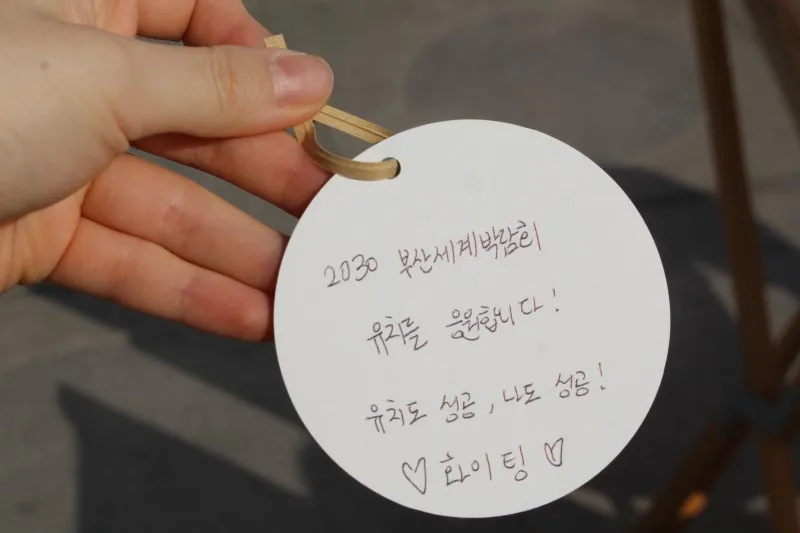 2030 부산세계박람회
유치를 응원합니다!
유치도 성공, 나도 성공!
♡ 화이팅 ♡